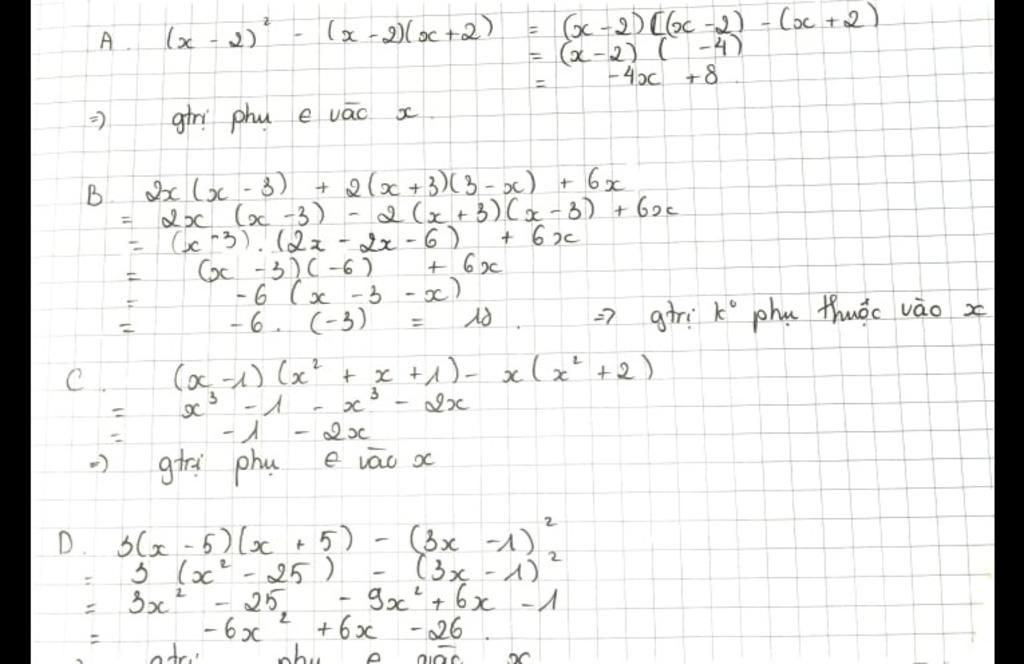 A. (x - 2)² - (x - 2)(x + 2) = (x - 2)[(x - 2) - (x + 2)
= (x - 2) ( -4)
= -4x + 8
=> gtrị phụ e vào x.
B. 2x(x - 3) + 2(x + 3)(3 - x) + 6x
= 2x (x - 3) - 2(x + 3)(x - 3) + 6x
= (x - 3).(2x - 2x - 6) + 6x
= (x - 3)(-6) + 6x
= -6 (x - 3 - x)
= -6. (-3) = 18. => gtrị k° phụ thuộc vào x
C. (x - 1)(x² + x + 1) - x(x² + 2)
= x³ - 1 - x³ - 2x
= -1 - 2x
=> gtrị phụ e vào x
D. 3(x - 5)(x + 5) - (3x - 1)²
= 3 (x² - 25) - (3x - 1)²
= 3x² - 25 - 9x² + 6x - 1
= -6x² + 6x - 26.
gtrị phụ e x